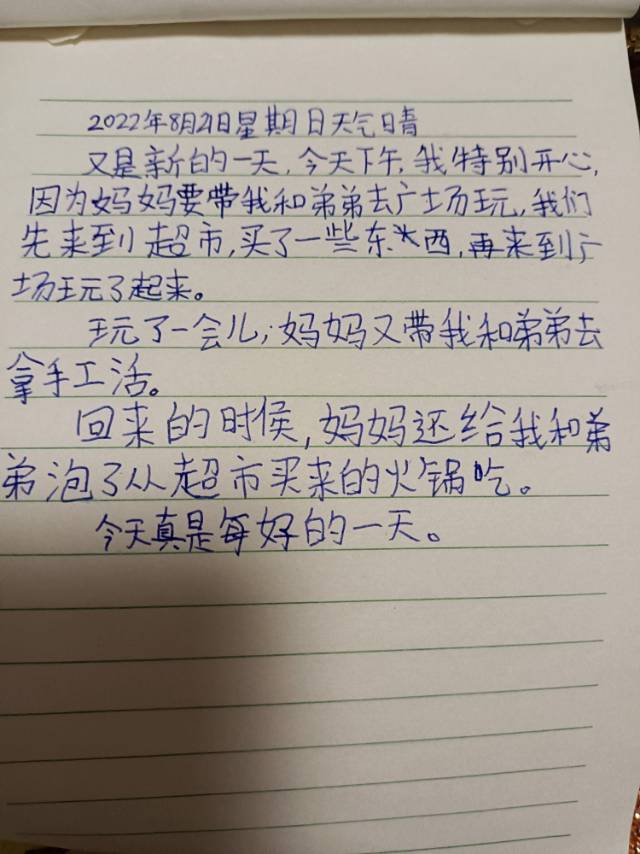 2022年8月21日星期日天气晴
又是新的一天,今天下午,我特别开心,
因为妈妈要带我和弟弟去广场玩,我们
先来到超市,买了一些东西,再来到广
场玩了起来。
玩了一会儿,妈妈又带我和弟弟去
拿手工活。
回来的时侯,妈妈还给我和弟
弟泡了从超市买来的火锅吃。
今天真是每好的一天。